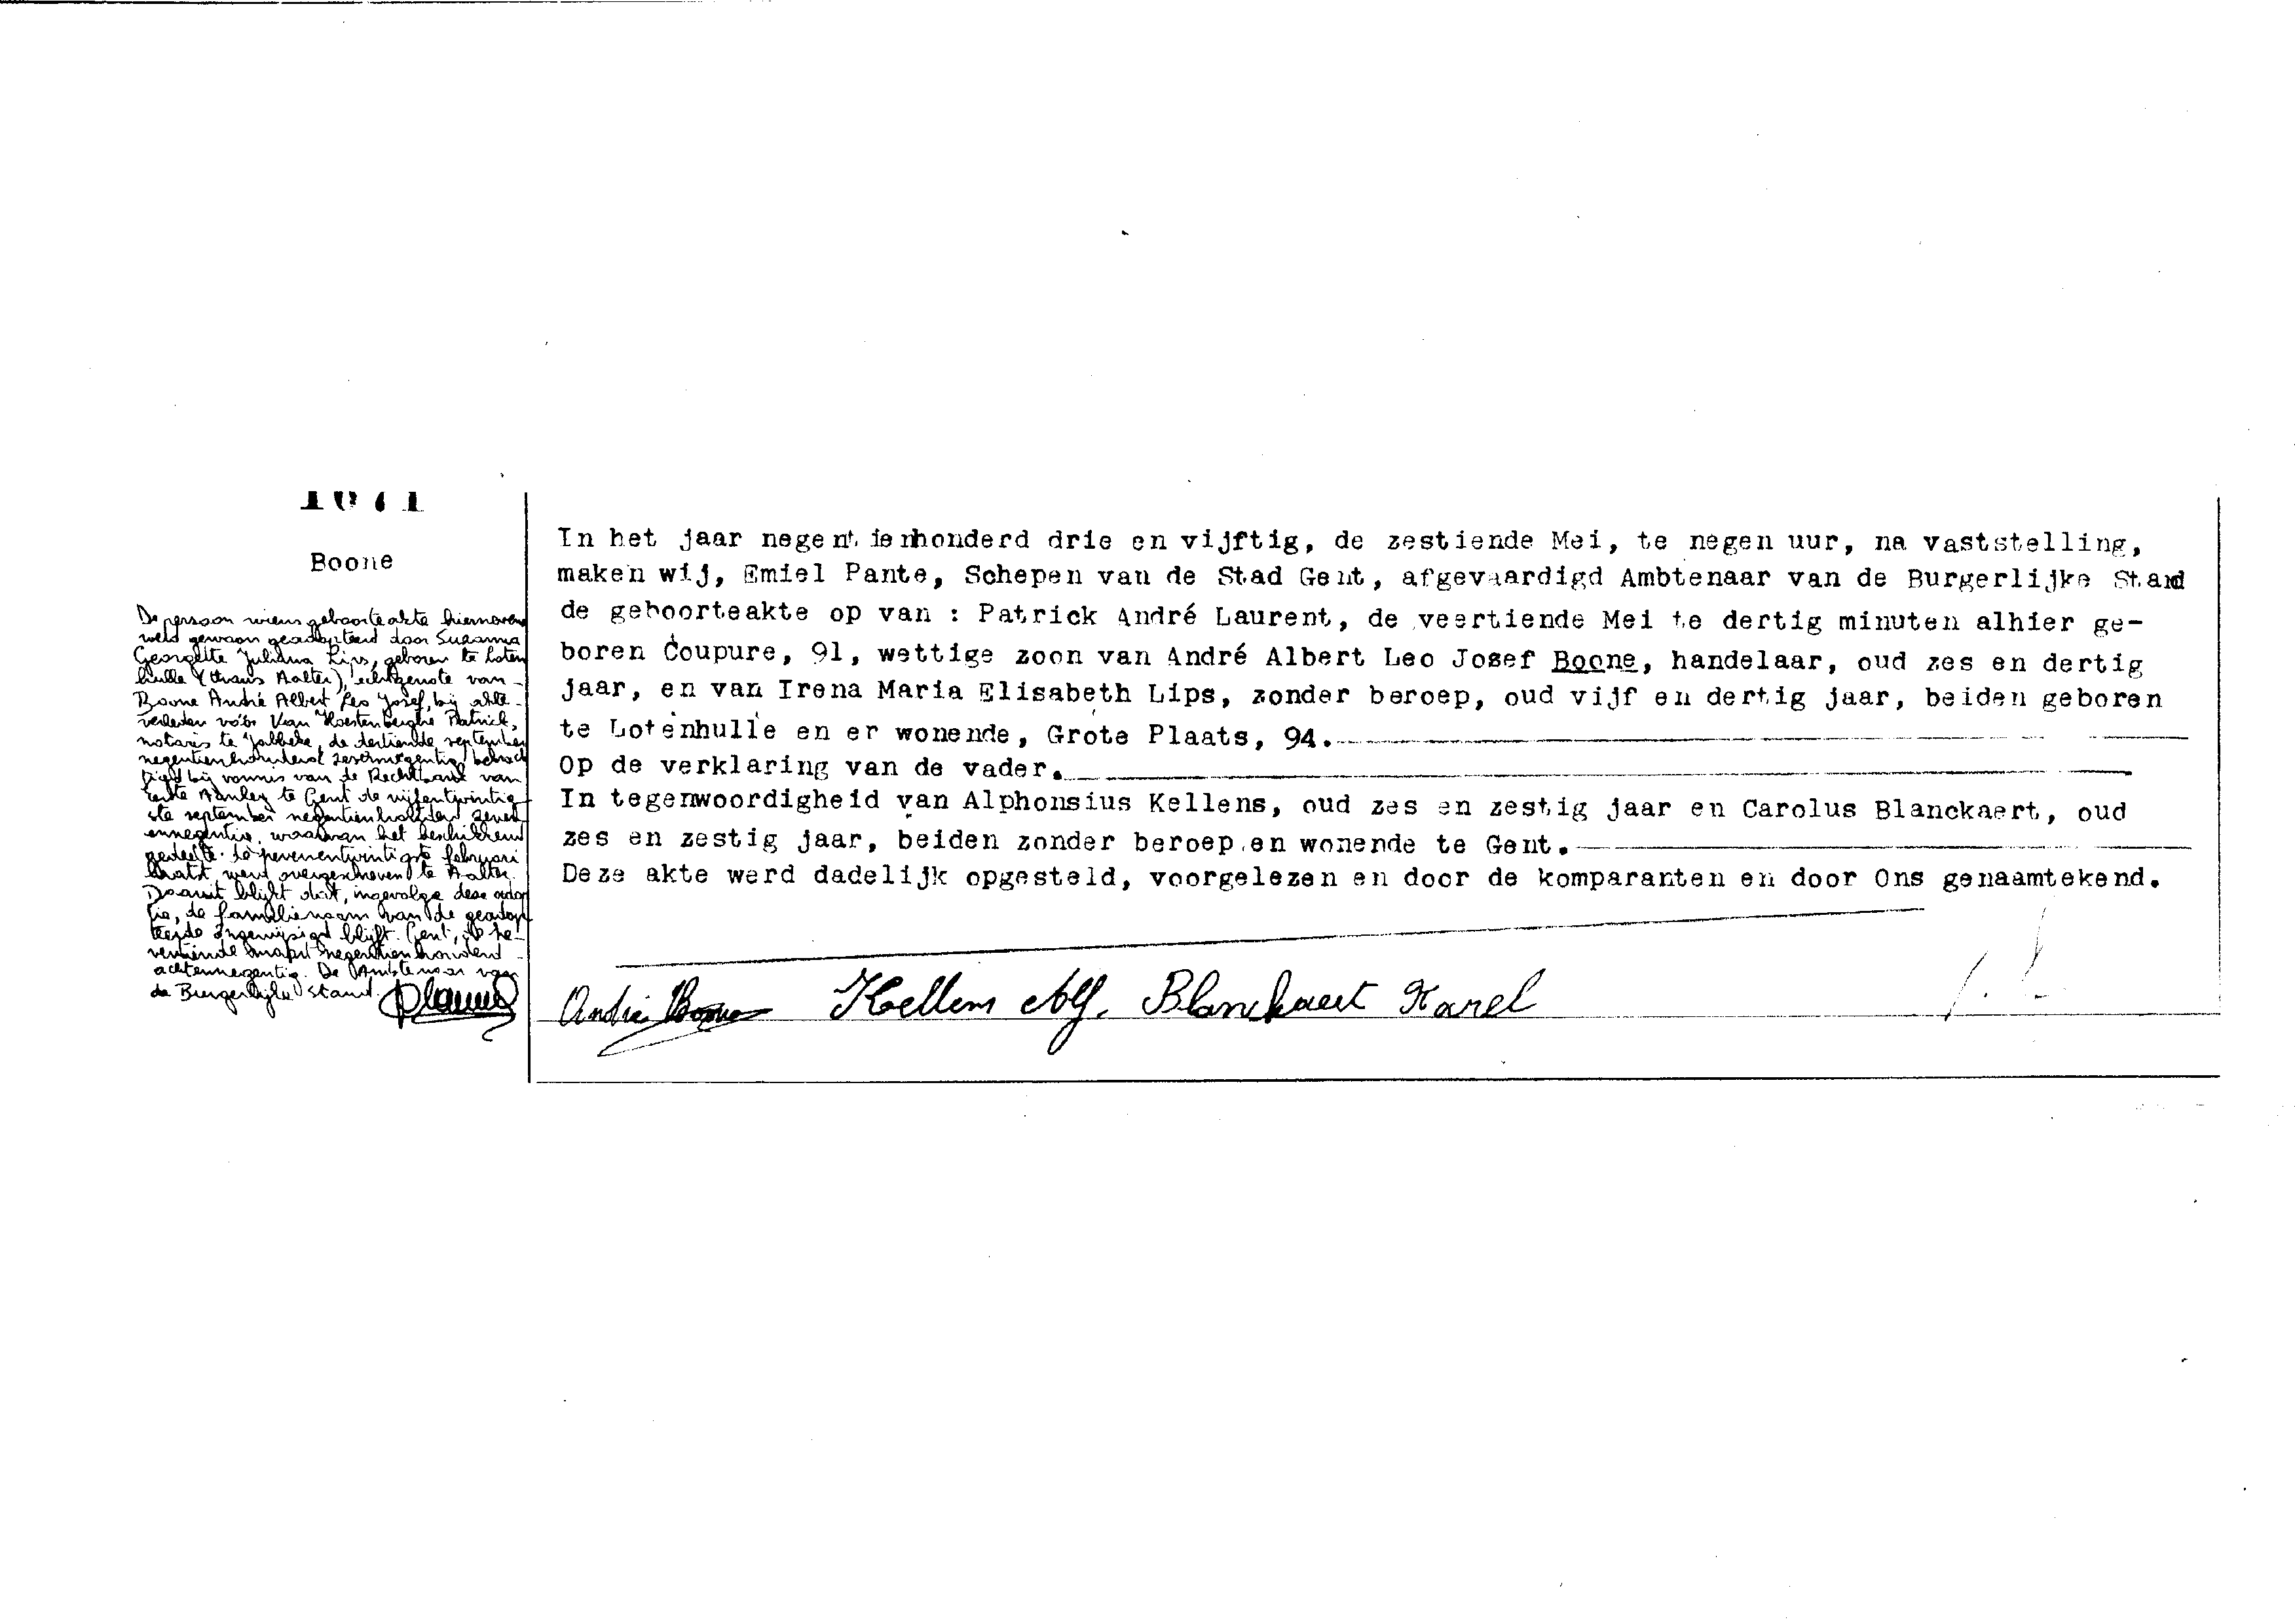 1071
Boone
De persoon wiens geboorteakte hiernevens
werd gewoon geadopteerd door Suzanna
Georgette Juliana Lips, geboren te Loten
hulle (thans Aalter), echtgenote van
Boone André Albert Leo Josef, bij akte
verleden vóór Van Hoestenberghe Patrick,
notaris te Jabbeke, de dertiende september
negentienhonderd zesennegentig bekrach
tigd bij vonnis van de Rechtbank van
eerste Aanleg te Gent de vijfentwintig
ste september negentienhonderd zeven
ennegentig, waarvan het beschikkend
gedeelte de zevenentwintigste februari
laatst, werd overgeschreven te Aalter.
Daaruit blijkt dat, ingevolge deze adop
tie, de familienaam van de geadop
teerde ongewijzigd blijft. Gent, de ze-
ventiende maart negentienhonderd
achtennegentig. De Ambtenaar van
de Burgerlijke stand.
In het jaar negentienhonderd drie en vijftig, de zestiende Mei, te negen uur, na vaststelling,
maken wij, Emiel Pante, Schepen van de Stad Gent, afgevaardigd Ambtenaar van de Burgerlijke Stand
de geboorteakte op van : Patrick André Laurent, de veertiende Mei te dertig minuten alhier ge-
boren Coupure, 91, wettige zoon van André Albert Leo Josef Boone, handelaar, oud zes en dertig
jaar, en van Irena Maria Elisabeth Lips, zonder beroep, oud vijf en dertig jaar, beiden geboren
te Lotenhulle en er wonende, Grote Plaats, 94.
Op de verklaring van de vader.
In tegenwoordigheid van Alphonsius Kellens, oud zes en zestig jaar en Carolus Blanckaert, oud
zes en zestig jaar, beiden zonder beroep en wonende te Gent.
Deze akte werd dadelijk opgesteld, voorgelezen en door de komparanten en door Ons genaamtekend.
André Boone Kellens Alf. Blanckaert Karel